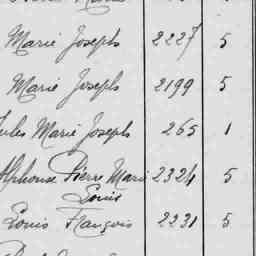 Marie Joseph 2227 5
Marie Joseph 2199 5
Jules Marie Joseph 265 1
Alphonse Pierre Marie 2324 5
Louis
Louis François 2231 5